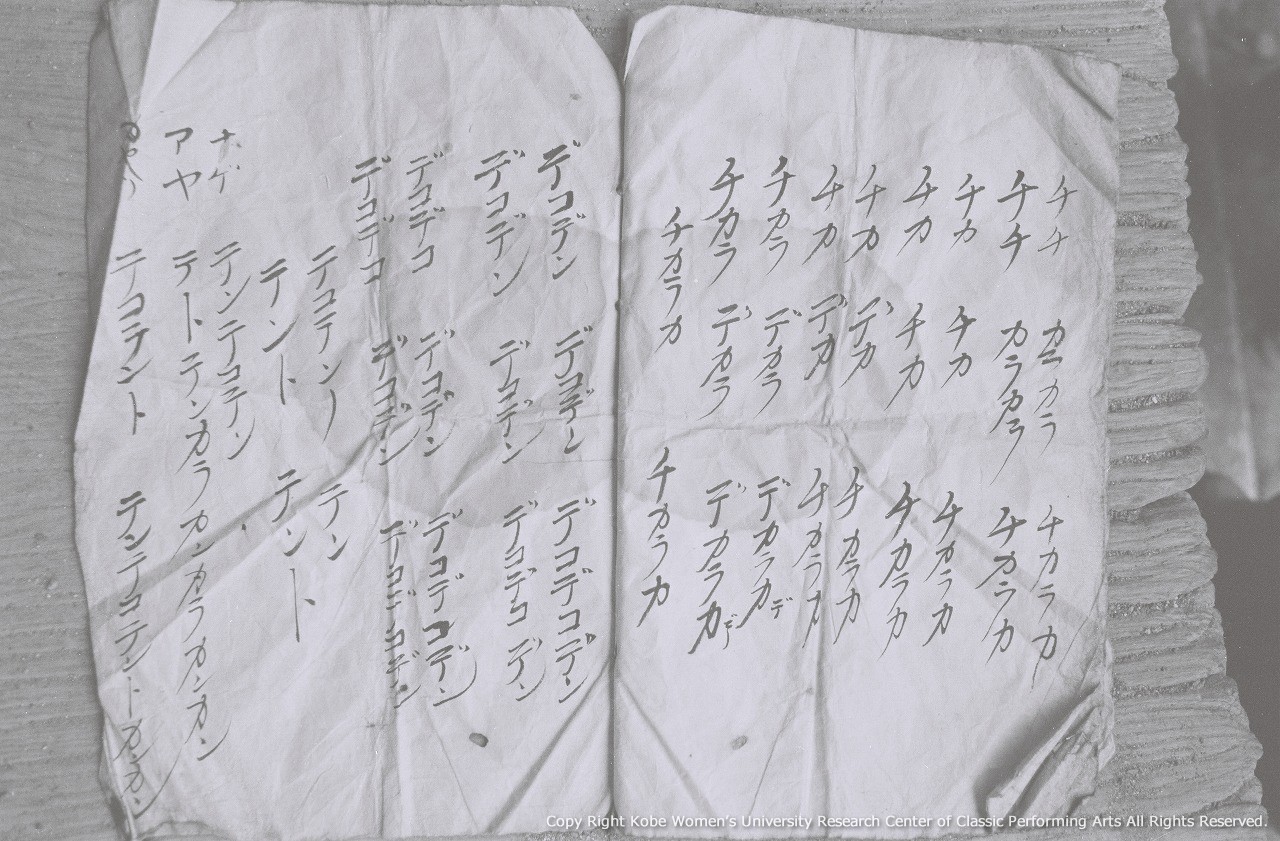 チチ カラカラ チカラカ
チチ カラカラ チカラカ
チカ チカ チカラカ
チカ チカ チカラカ
チカ デカ チカラカ
チカ デカ チカラカ
チカラ デカラ デカラカデ
チカラ デカラ デカラカデ
チカラカ チカラカ
デコデン デコデン デコデコデン
デコデン デコデン デコデコデン
デコデコ デコデン デコデコデン
デコデコ デコデン デコデコデン
テコテンー テン
テント テント
ナゲ テンテコテン
アヤ テトテンカラカンカラカンカン
テコテント テンテコテントカカン
Copy Right Kobe Women's University Research Center of Classic Performing Arts All Rights Reserved.